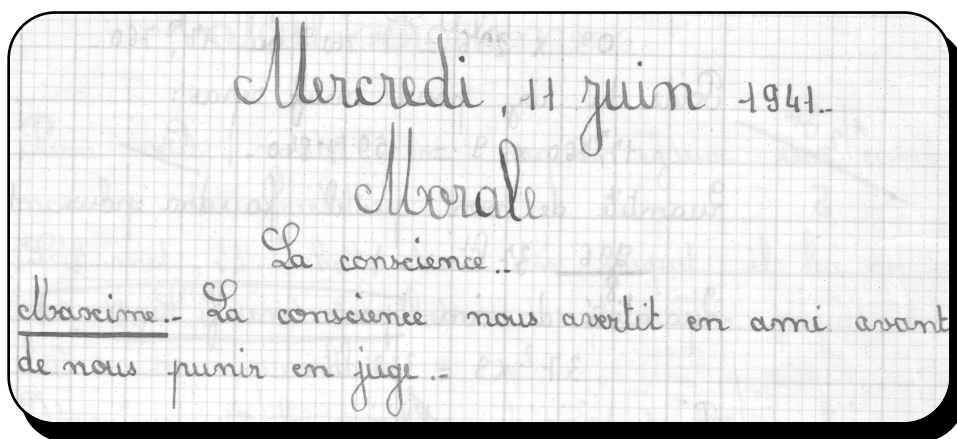 Mercredi, 11 juin 1941.-
Morale
La conscience..
Maxime.- La conscience nous avertit en ami avant
de nous punir en juge.-